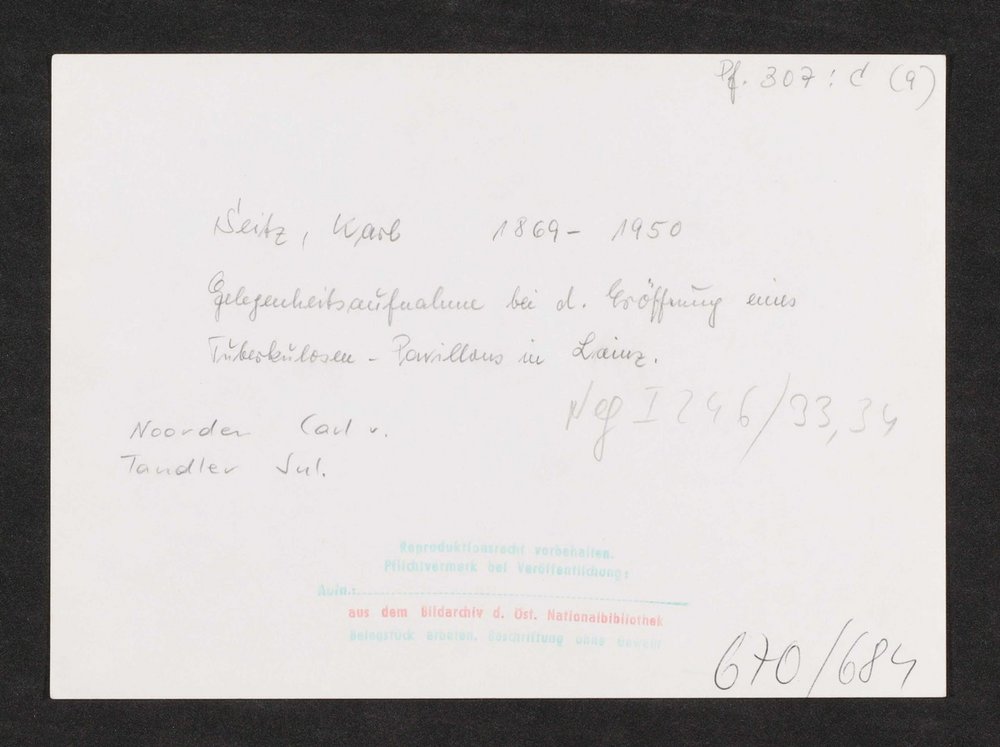 Pf. 307 : C (9)
Seitz, Karl 1869 - 1950
Gelegenheitsaufnahme bei d. Eröffnung eines
Tuberkulosen - Pavillons in Lainz.
Neg I 246/33,34
Noorden Carl v.
Tandler Jul.
Reproduktionsrecht vorbehalten.
Pflichtvermerk bei Veröffentlichung:
Aufn.:
aus dem Bildarchiv d. Öst. Nationalbibliothek
Belegstück erbeten. Beschriftung ohne Gewähr
670/684